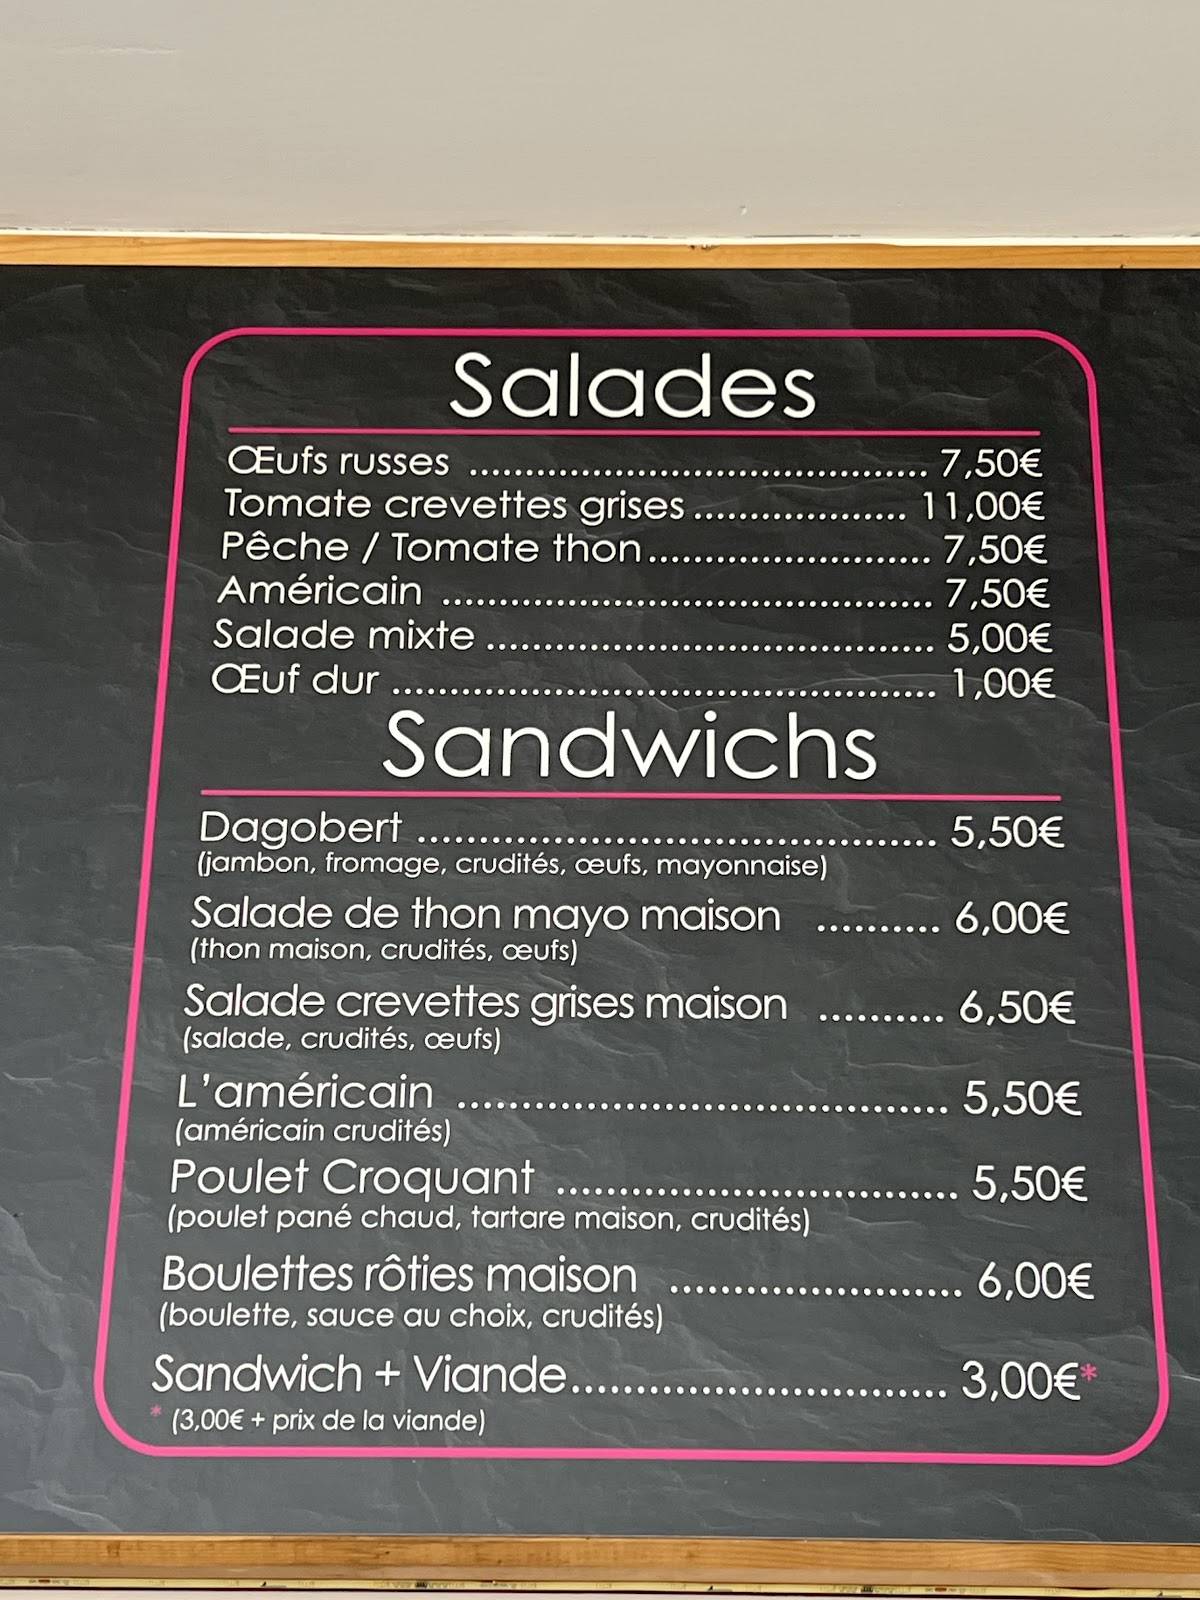 Salades
Œufs russes ........................................ 7,50€
Tomate crevettes grises ................... 11,00€
Pêche / Tomate thon......................... 7,50€
Américain ........................................... 7,50€
Salade mixte ....................................... 5,00€
Œuf dur ................................................ 1,00€
Sandwichs
Dagobert .......................................... 5,50€
(jambon, fromage, crudités, œufs, mayonnaise)
Salade de thon mayo maison .......... 6,00€
(thon maison, crudités, œufs)
Salade crevettes grises maison .......... 6,50€
(salade, crudités, œufs)
L'américain ...................................... 5,50€
(américain crudités)
Poulet Croquant ............................... 5,50€
(poulet pané chaud, tartare maison, crudités)
Boulettes rôties maison ....................... 6,00€
(boulette, sauce au choix, crudités)
Sandwich + Viande............................. 3,00€*
* (3,00€ + prix de la viande)